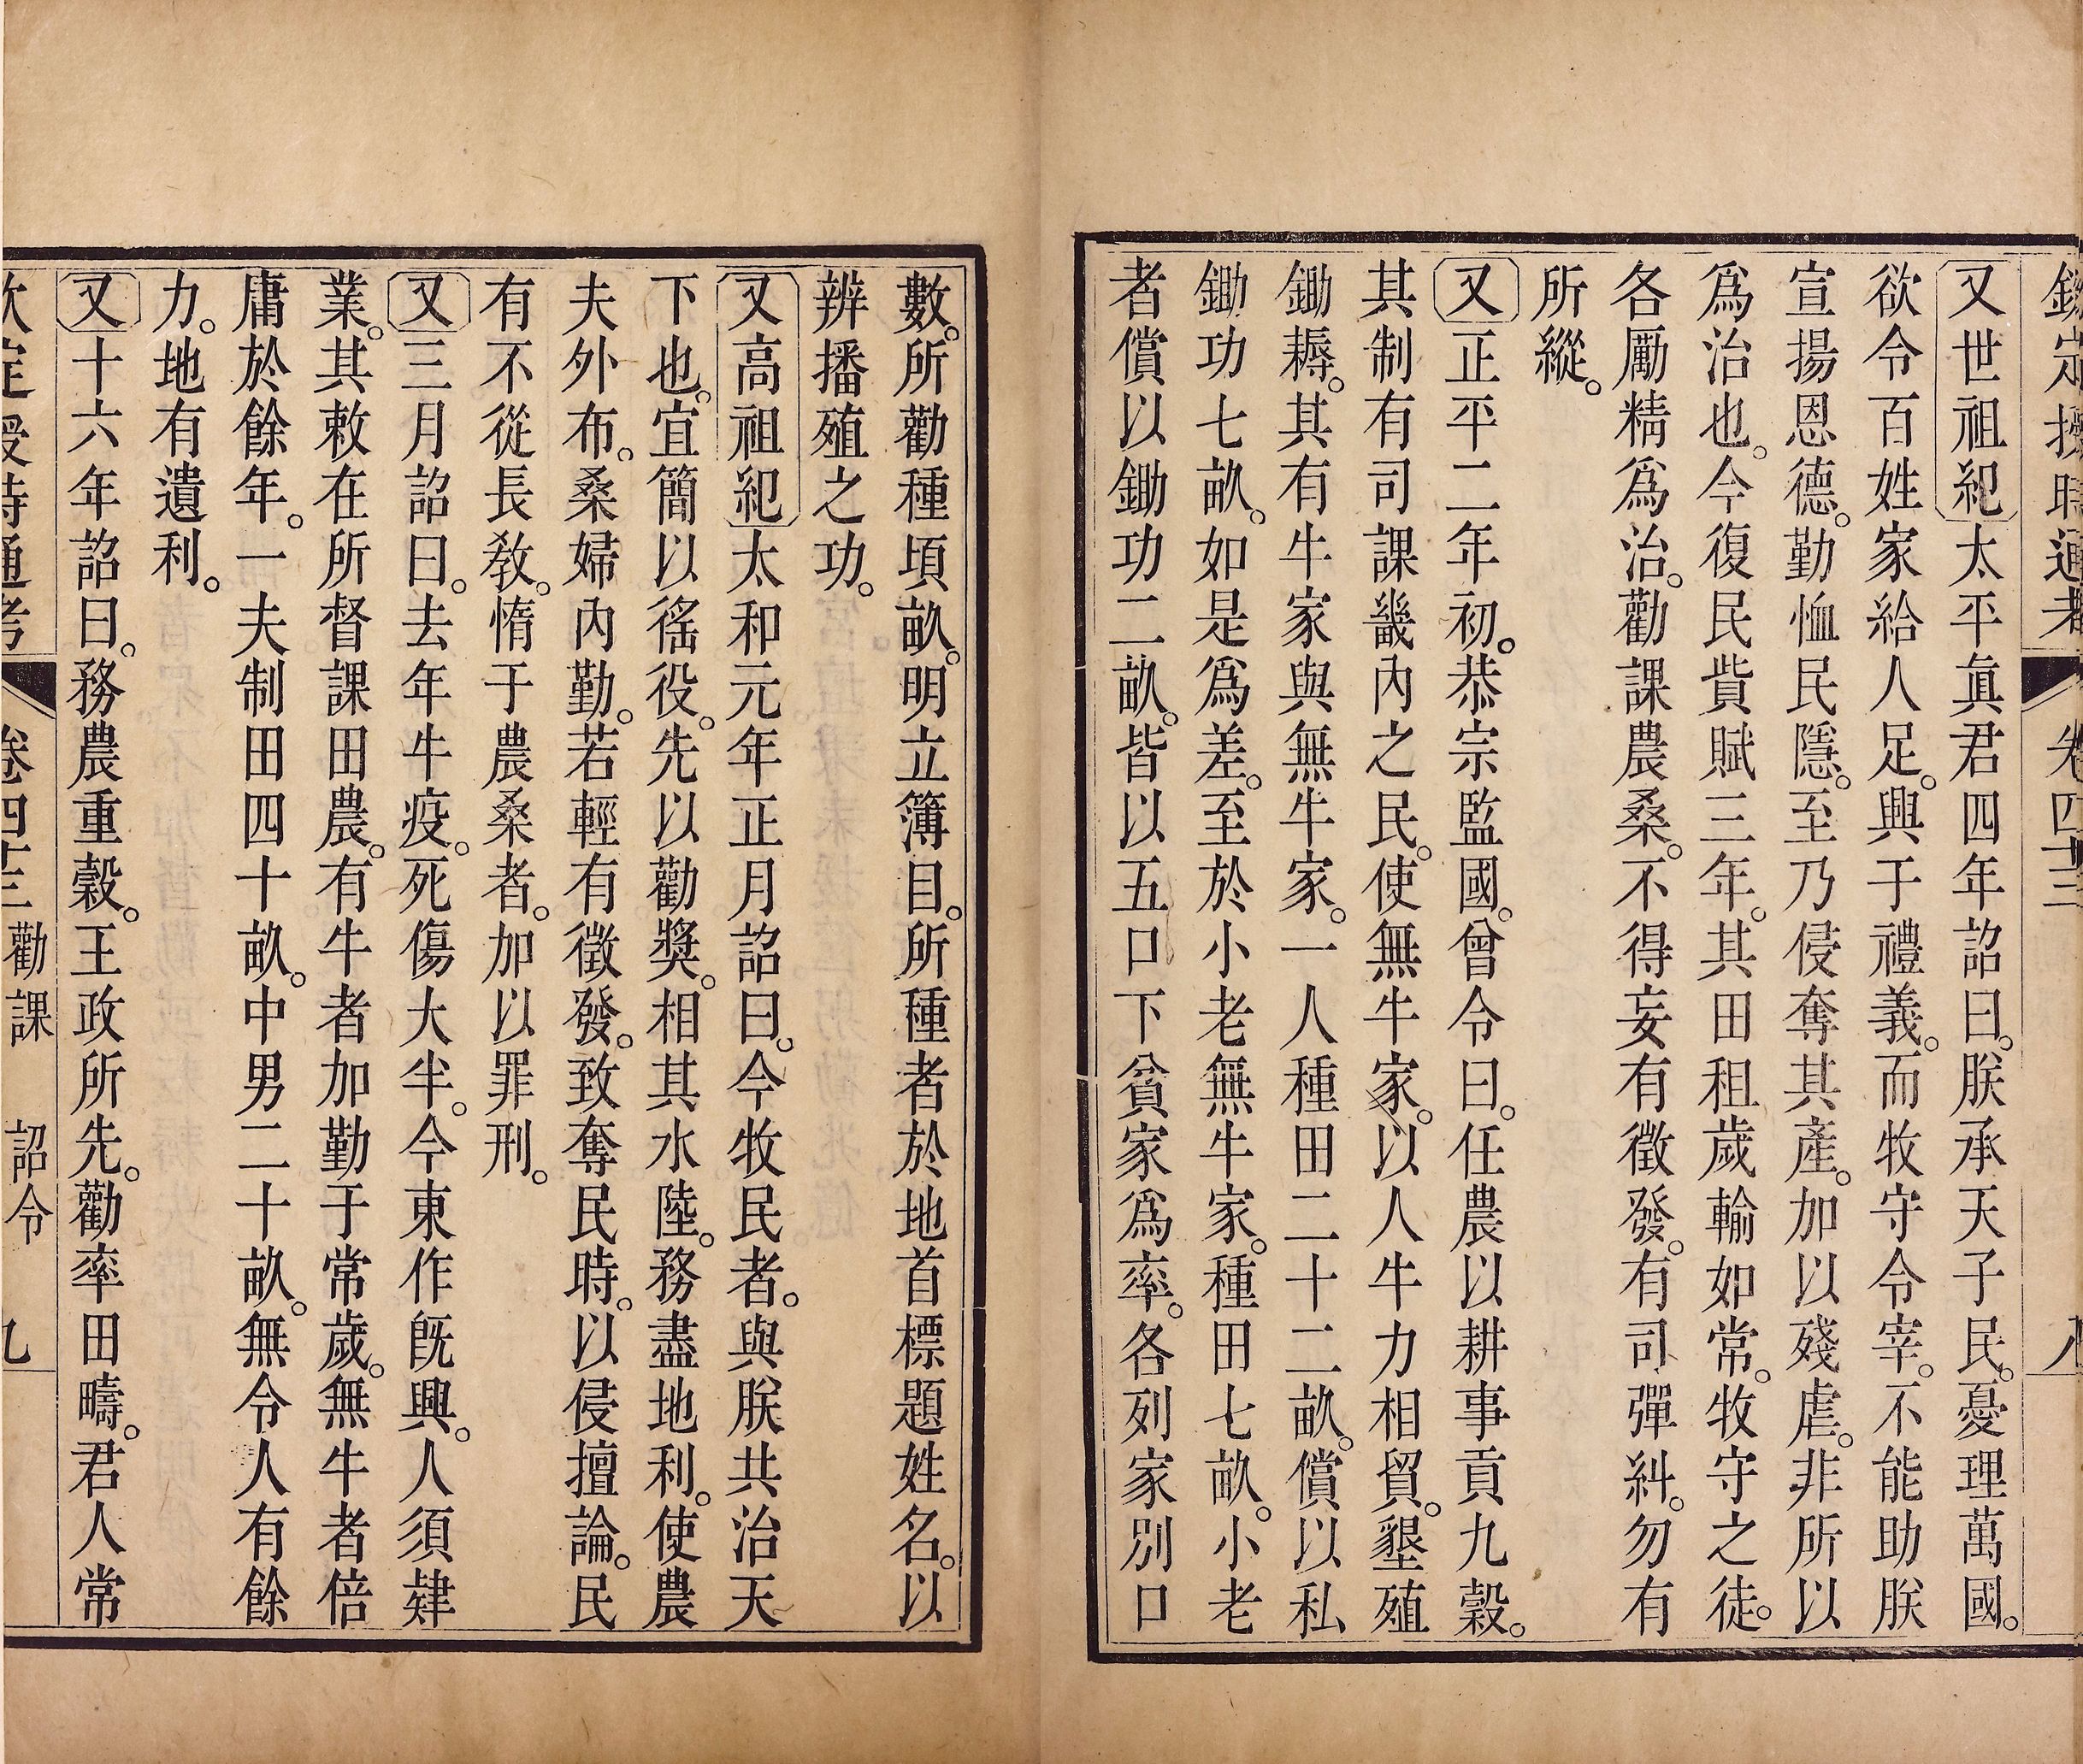 欽定授時通考 卷四十三 八
又世祖紀太平眞君四年詔曰。朕承天子民。憂理萬國。
欲令百姓家給人足。興于禮義。而牧守令宰。不能助朕
宣揚恩德。勤恤民隱。至乃侵奪其產。加以殘虐。非所以
爲治也。今復民貲賦三年。其田租歲輸如常。牧守之徒。
各厲精爲治。勸課農桑。不得妄有徵發。有司彈糾。勿有
所縱。
又正平二年初。恭宗監國。曾令曰。任農以耕事貢九穀。
其制有司課畿內之民。使無牛家。以人牛力相貿。墾殖
鋤耨。其有牛家與無牛家。一人種田二十二畝。償以私
鋤功七畝。如是爲差。至於小老無牛家。種田七畝。小老
者償以鋤功二畝。皆以五口下貧家爲率。各列家別口
數。所勸種頃畝。明立簿目。所種者於地首標題姓名。以
辨播殖之功。
又高祖紀太和元年正月詔曰。今牧民者。與朕共治天
下也。宜簡以徭役。先以勸獎。相其水陸。務盡地利。使農
夫外布。桑婦內勤。若輕有徵發。致奪民時。以侵擅論。民
有不從長教。惰于農桑者。加以罪刑。
又三月詔曰。去年牛疫。死傷大半。今東作旣興。人須肄
業。其敕在所督課田農。有牛者加勤于常歲。無牛者倍
庸於餘年。一夫制田四十畝。中男二十畝。無令人有餘
力。地有遺利。
又十六年詔曰。務農重穀。王政所先。勸率田疇。君人常
欽定授時通考 卷四十三 勸課 詔令 九